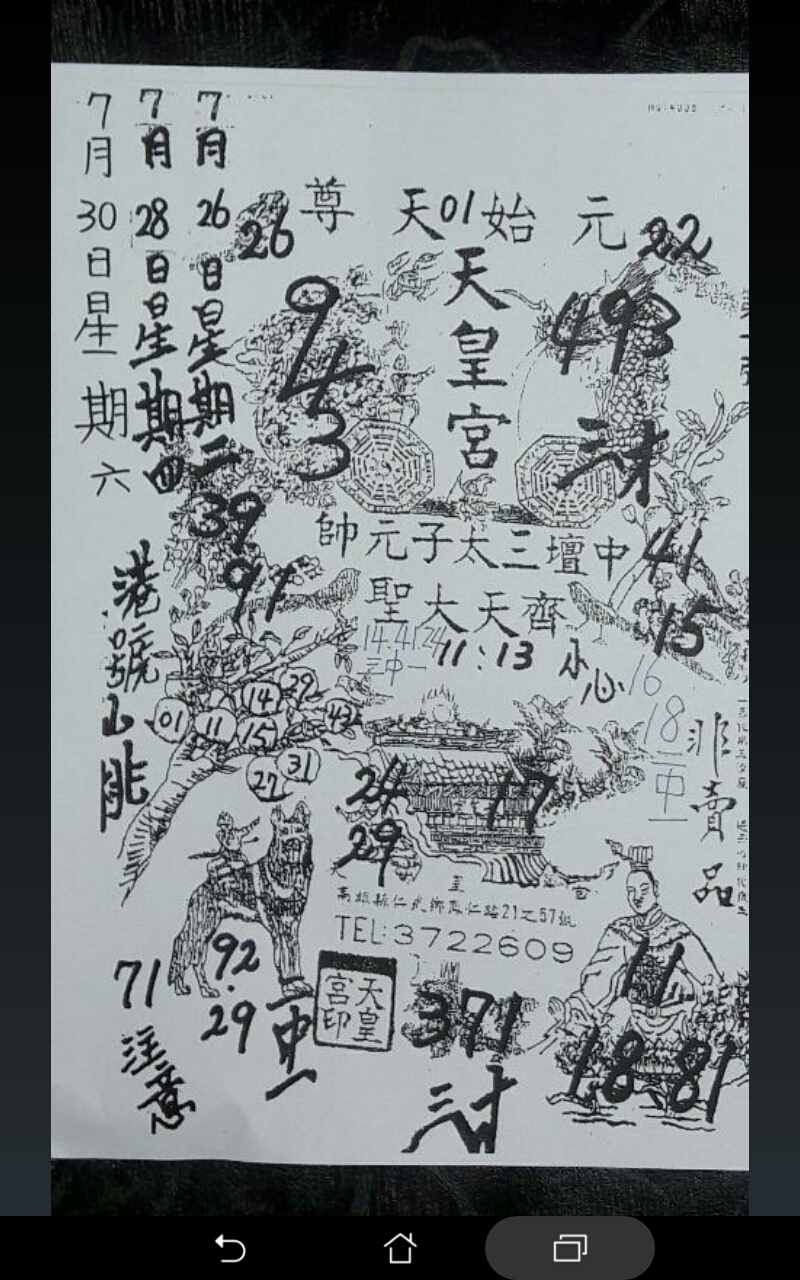 7月30日星期六
7月28日星期四
7月26日星期二
26
尊天01始元
22
天皇宮
943
493
三才
39
91
帥元子太三壇中
41
聖大天齊
15
14.41.24
三中一
11:13
小心
16
18
二中一
港號
01
11
14
15
39
43
27
31
24
29
17
非賣品
天皇宮
TEL:3722609
天皇宮印
92.29
二中一
71
注意
371
三才
11
18.81